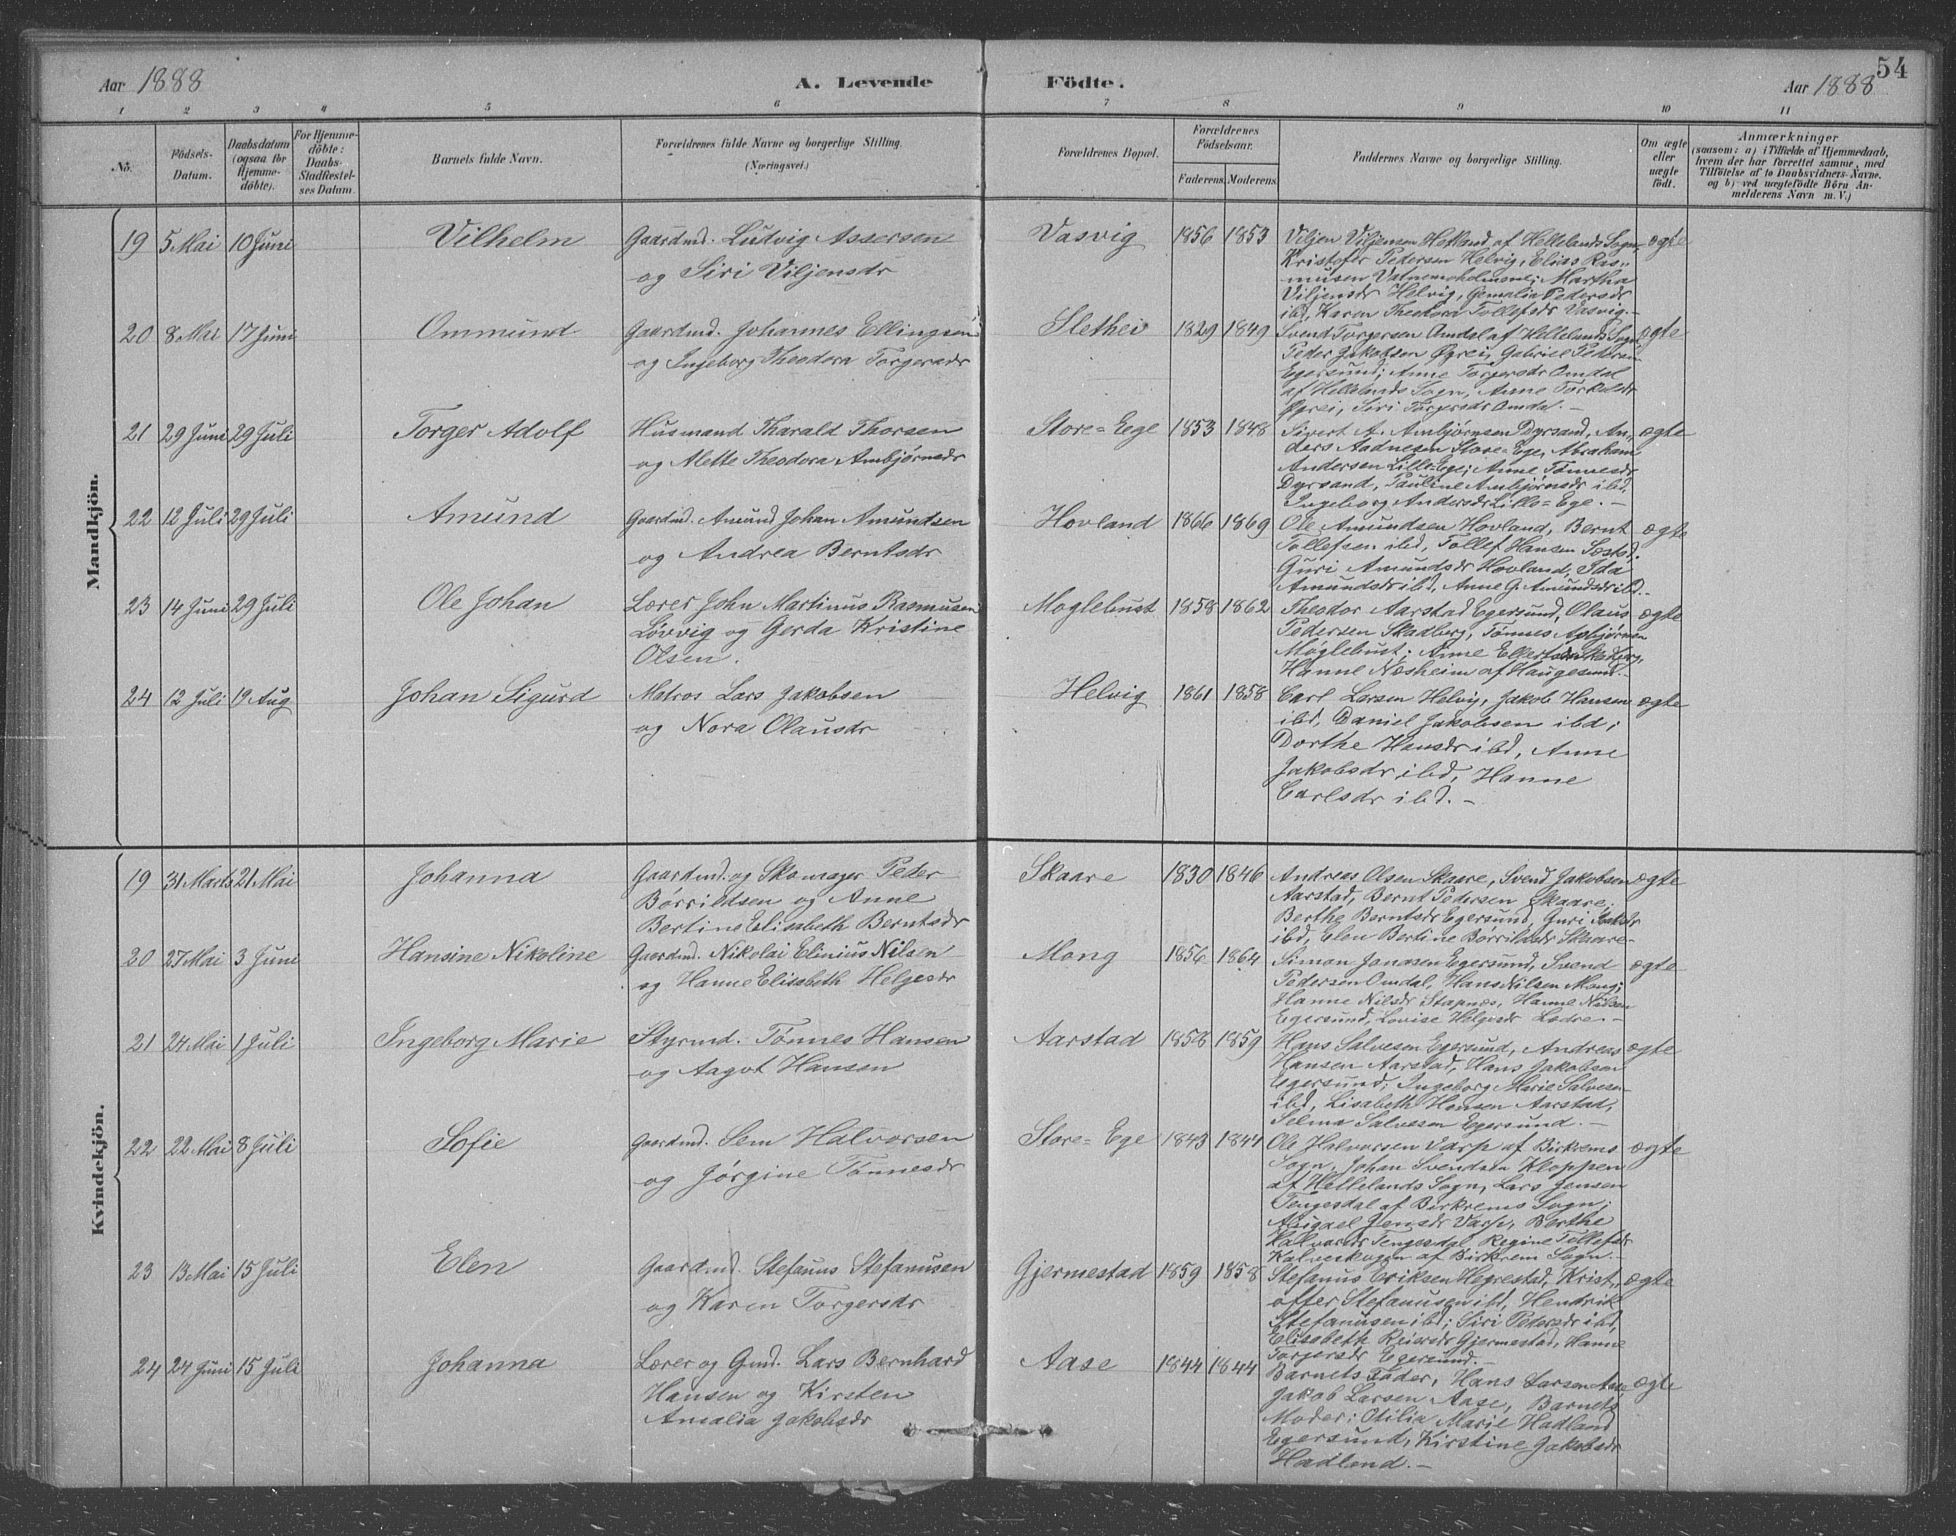 Aar 1888
A. Levende
Födte.
Aar 1888
54
1 2 3 4 5 6 7 8 9 10 11
No.
Födsels-
Datum.
Daabsdatum
(ogsaa for
Hjemme-
döbte).
For Hjemme-
döbte:
Daabs-
Stadfæstel-
ses Datum.
Barnets fulde Navn.
Forældrenes fulde Navne og borgerlige Stilling.
(Næringsvei.)
Forældrenes Bopæl.
Forældrenes
Födselsaar.
Faderens. Moderens.
Faddernes Navne og borgerlige Stilling.
Om ægte
eller
uægte
födt.
Anmærkninger
(saasom: a) i Tilfælde af Hjemmedaab,
hvem der har forrettet samme, med
Tilföielse af to Daabsvidners Navne.
og b) ved uægtefödte Börn An-
melderens Navn m. V.)
Mandkjön.
19 5 Mai 10 Juni Vilhelm
Gaardmd. Lutvig Assersen
og Siri Viljensdr
Vasvig 1856 1853
Viljen Viljensen Hetland af Hellelands Sogn
Kristofer Pedersen Helvig, Elias Ras-
musen Vatnemoholmene; Martha
Viljensdr Helvig, Gemalia Pedersdr
ibd, Karen Theodora Tollefsdr Vasvig.-
ægte
20 8 Mai 17 Juni Ommund
Gaardmd. Johannes Ellingsen
og Ingeborg Theodora Torgersdr
Slethei 1829 1849
Svend Torgersen Omdal af Hellelands Sogn
Peder Jakobsen Øgrei, Gabriel Pedersen
Egersund; Anne Torgersdr Omdal
af Hellelands Sogn, Anne Torkelsdr
Øgrei, Siri Torgersdr Omdal.-
ægte
21 29 Juni 29 Juli Torger Adolf
Husmand Tharald Thorsen
og Alette Theodora Ambjørnsdr
Store=Ege 1853 1848
Sivert A. Ambjørnsen Dyrsand, An-
ders Aadnesen Store=Ege, Abraham
Andersen Lille=Ege; Anne Tønnesdr
Dyrsand, Pauline Ambjørnsdr ibd,
Ingeborg Andersdr Lille=Ege.-
ægte
22 12 Juli 29 Juli Amund
Gaardmd. Amund Johan Amundsen
og Andrea Berntsdr
Hovland 1866 1869
Ole Amundsen Hovland, Bernt
Tollefsen ibd, Tollef Hansen
Guri Amundsdr Hovland, Ida
Amundsdr ibd, Anne G. Amundsdr ibd.-
ægte
23 14 Juni 29 Juli Ole Johan
Lærer John Martinus Rasmusen
Løvvig og Gerda Kristine
Olsen.
Møglebust 1858 1862
Theodor Aarstad Egersund, Olaus
Pedersen Skadberg, Tønnes Asbjørnsen
Møglebust; Anne
Hanne Næsheim af Haugesund.-
ægte
24 12 Juli 19 Aug Johan Sigurd
Matros Lars Jakobsen
og Nora Olausdr
Helvig 1861 1858
Carl Larsen Helvig, Jakob Hansen
ibd, Daniel Jakobsen ibd;
Dorthe Hansdr ibd, Anne
Jakobsdr ibd, Hanne
Carlsdr ibd.-
ægte
Kvindekjön.
19 31 Marts 21 Mai Johanna
Gaardmd. og Skomager Peder
Børrildsen og Anne
Bertine Elisabeth Berntsdr
Skaare 1830 1846
Andreas Olsen Skaare, Svend Jakobsen
Aarstad, Bernt Pedersen Skaare;
Berthe Berntsdr Egersund, Guri Jakobsdr
ibd, Elen Bertine Børrildsdr Skaare-
ægte
20 27 Mai 3 Juni Hansine Nikoline
Gaardmd. Nikolai Elinius Nilsen
og Hanne Elisabeth Helgesdr
Mong 1856 1864
Simon Jonassen Egersund, Svend
Pedersen Omdal, Hans Nilsen Mong;
Hanne Nilsdr Stapnes, Hanne Nilsen
Egersund, Lovise Helgesdr Lædre.-
ægte
21 24 Mai 1 Juli Ingeborg Marie
Styrmd. Tønnes Hansen
og Aagot Hansen
Aarstad 1858 1859
Hans Salvesen Egersund, Andreas
Hansen Aarstad, Hans Jakobsen
Egersund; Ingeborg Marie Salvesen
ibd, Lisabeth Hansen Aarstad,
Selma Salvesen Egersund.-
ægte
22 22 Mai 8 Juli Sofie
Gaardmd. Sem Halvorsen
og Jørgine Tønnesdr
Store=Ege 1843 1844
Ole Halvorsen Varp af Birkrems
Sogn, Johan Svendsen Kloppen
af Hellelands Sogn, Lars Jensen
Tengesdal af Birkrems Sogn;
Abigael Jensdr Varp, Berthe
Halvorsdr Tengesdal, Regine Tollefsdr
Kalveskogen af Birkrem Sogn.-
ægte
23 13 Mai 15 Juli Elen
Gaardmd. Stefanus Stefanusen
og Karen Torgersdr
Gjermestad 1859 1858
Stefanus Eriksen Hegrestad, Krist-
offer Stefanusen ibd, Hendrik
Stefanusen ibd; Siri Pedersdr ibd,
Elisabeth Reiersdr Gjermestad, Hanne
Torgersdr Egersund.-
ægte
24 24 Juni 15 Juli Johanna
Lærer og Gmd. Lars Bernhard
Hansen og Kirsten
Amalia Jakobsdr
Aase 1844 1844
Barnets Fader, Hans Larsen Aase,
Jakob Larsen Aase, Barnets
Moder; Otilia Marie Hadland
Egersund, Kirstine Jakobsdr
Hadland.-
ægte